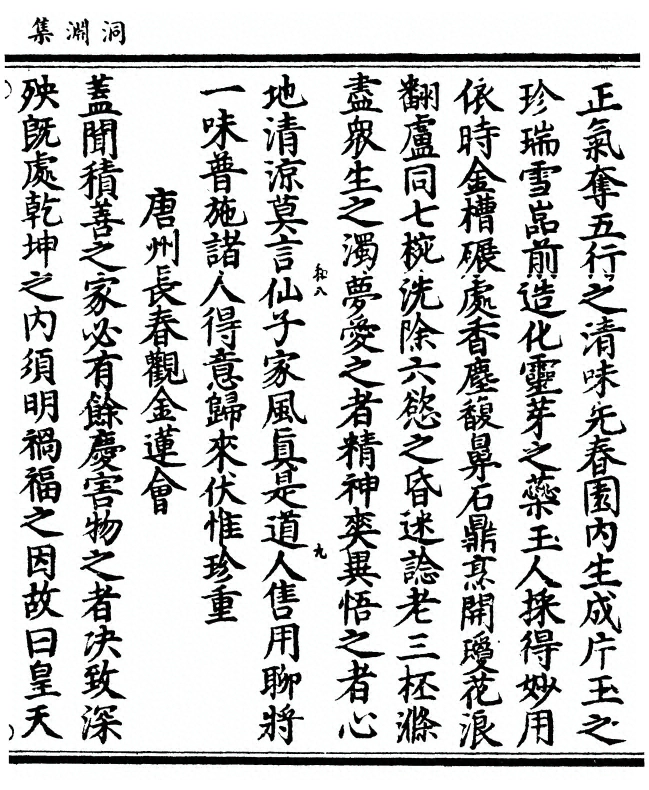 洞淵集
正氣奪五行之清味先春園内生成片玉之
珍瑞雪嵓前造化靈芽之蘂玉人採得妙用
依時金槽碾處香塵馥鼻石鼎烹開瓊花浪
翻盧同七椀洗除六慾之昏迷諗老三杯滌
盡衆生之濁夢愛之者精神爽異悟之者心
地清涼莫言仙子家風眞是道人售用聊將
一味普施諸人得意歸來伏惟珍重
唐州長春觀金蓮會
蓋聞積善之家必有餘慶害物之者决致深
殃旣處乾坤之内須明禍福之因故曰皇天
和八
九